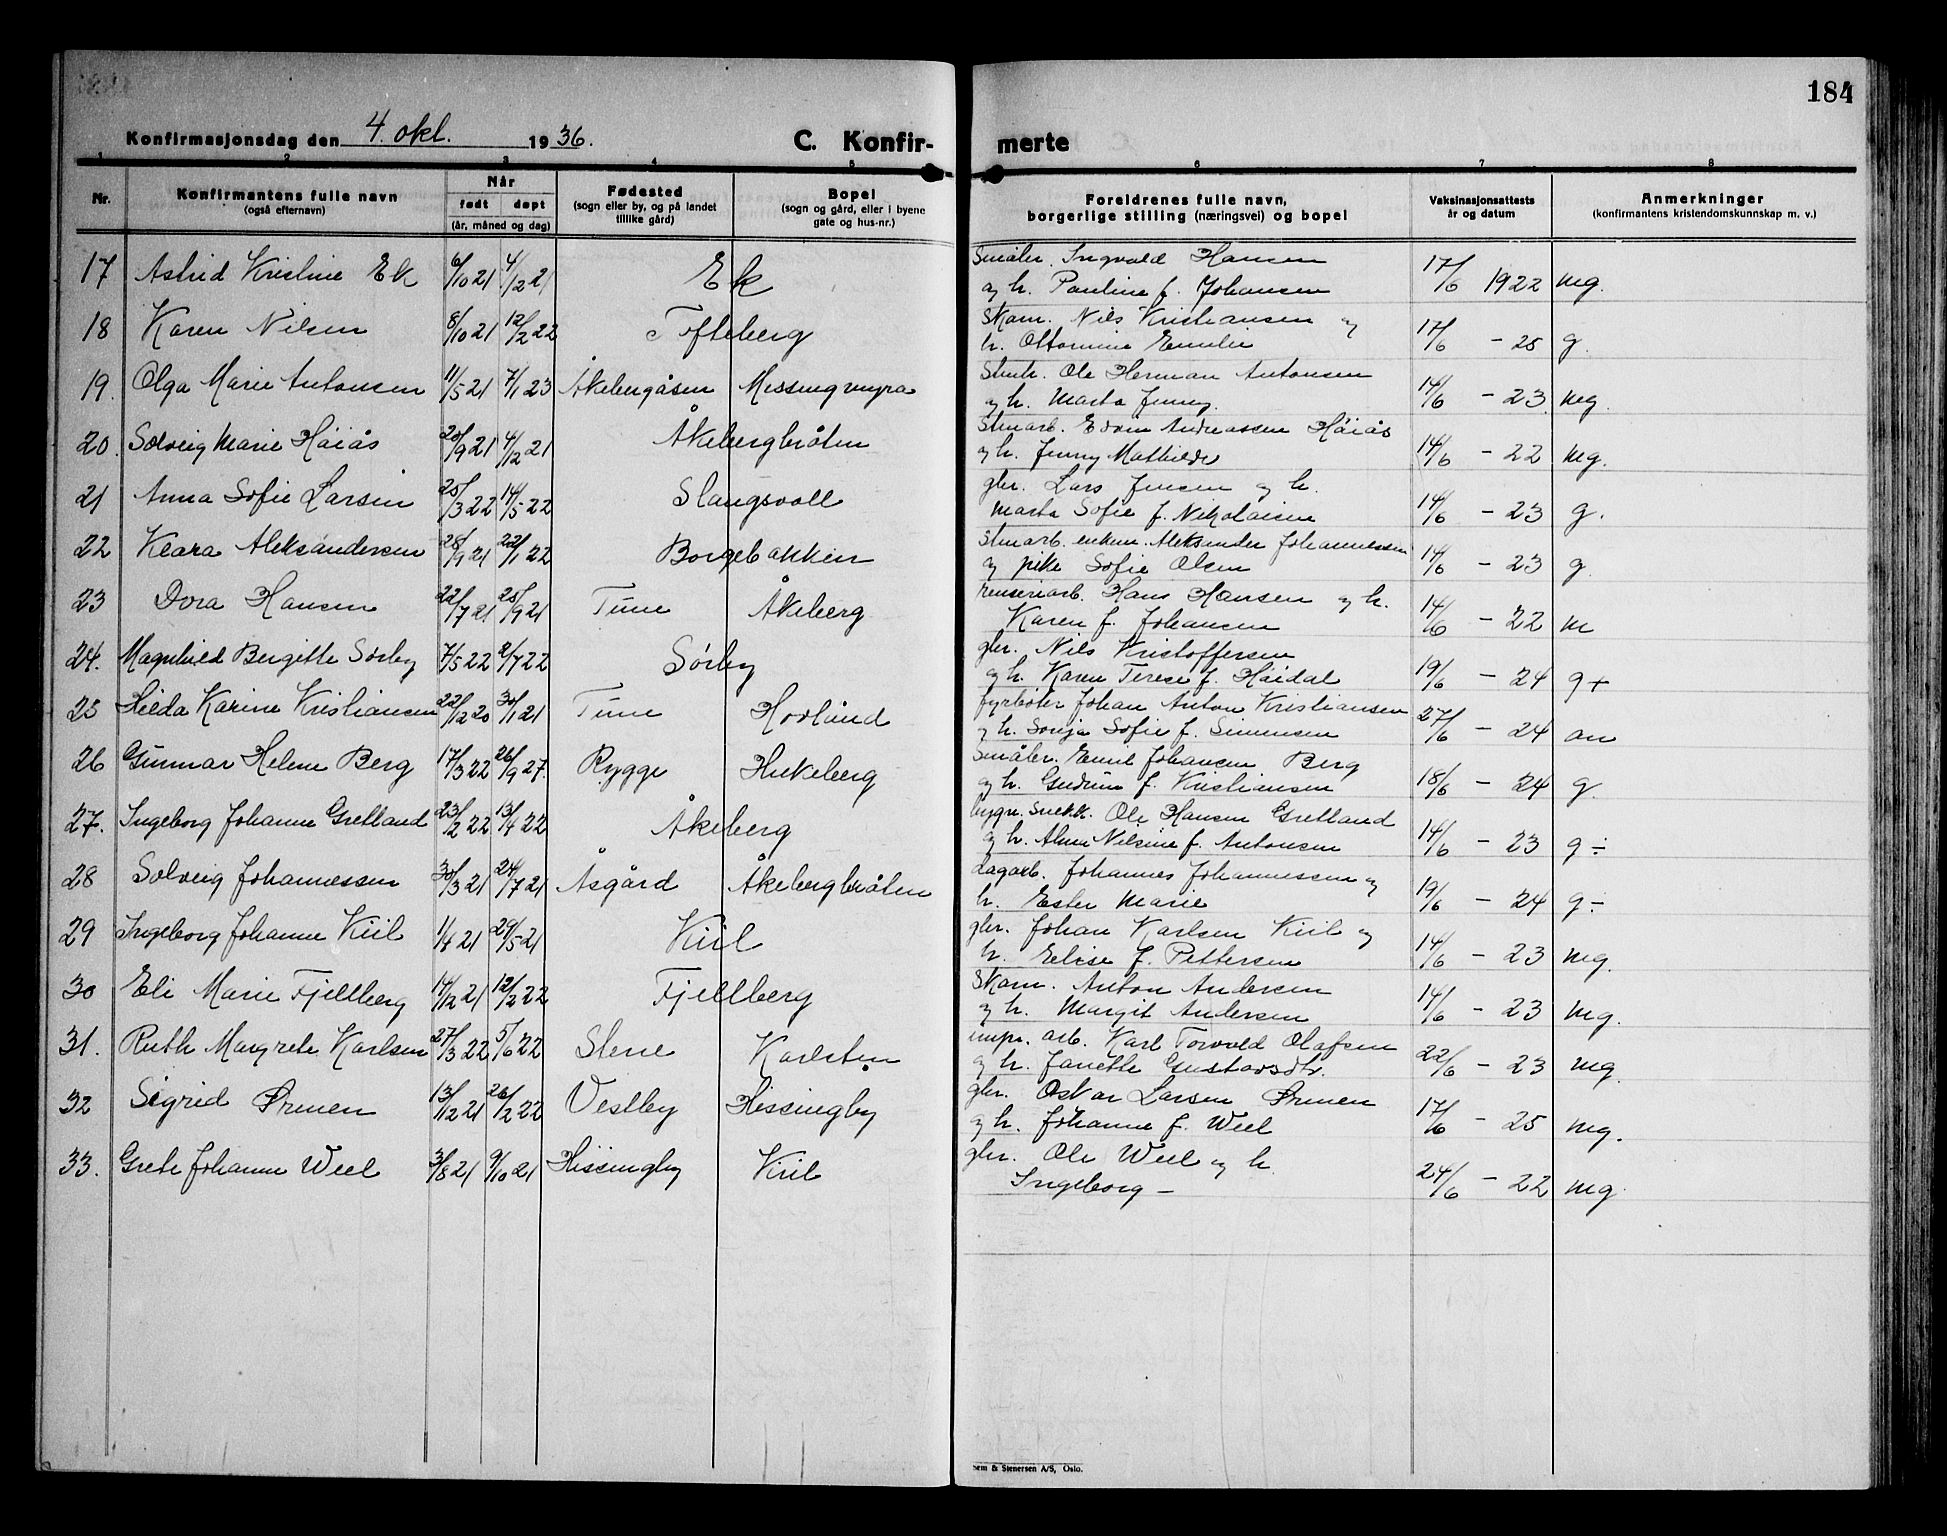 184
Konfirmasjonsdag den 4. okt. 1936.
C. Konfir-
merte
1 2 3 4 5 6 7 8
Nr.
Konfirmantens fulle navn
(også efternavn)
Når
født døpt
(år, måned og dag)
Fødested
(sogn eller by, og på landet
tillike gård)
Bopel
(sogn og gård, eller i byene
gate og hus-nr.)
Foreldrenes fulle navn,
borgerlige stilling (næringsvei) og bopel
Vaksinasjonsattests
år og datum
Anmerkninger
(konfirmantens kristendomskunnskap m. v.)
17 Astrid Kristine Ek 6/10 21 4/12 21 Ek
Småbr. Ingvald Hansen
og h. Pauline f. Johansen 17/6 1922 mg.
18 Karen Nilsen 8/10 21 12/2 22 Tofteberg
Skom. Nils Kristiansen og
h. Ottomine Emilie 17/6 - 25 g.
19. Olga Marie Antonsen 11/5 21 7/1 23 Åkebergåsen Messingmyra
Stenh. Ole Herman Antonsen
og h. Marta Jenny. 14/6 - 23 mg.
20. Solveig Marie Höiås 20/9 21 4/12 21 Åkebergbråten
Stenarb. Edvin Andreassen Höiås
og h. Jenny Mathilde 14/6 - 22 mg.
21 Anna Sofie Larsen 25/3 22 14/5 22 Slangsvoll
gbr. Lars Jensen og h.
Marta Sofie f. Nikolaisen 14/6 - 23 g.
22 Klara Aleksandersen 28/9 21 22/1 22 Borgebakken
Stenarb. enkem. Aleksander Johannessen
og pike Sofie Olsen 14/6 - 23 g.
23 Dora Hansen 22/7 21 25/9 21 Tune Åkeberg
renseriarb. Hans Hansen og h.
Karen f. Johansen 14/6 - 22 m
24. Magnhild Bergitte Sørby 7/5 22 2/7 22 Sörby
gbr. Nils Kristoffersen
og h. Karen Terese f. Höidal 19/6 - 24 g+
25 Hilda Karine Kristiansen 22/12 20 30/1 21 Tune Hovland
fyrböter Johan Anton Kristiansen
og h. Sonja Sofie f. Simensen 27/6 - 24 mn
26 Gunnar Helene Berg 17/3 22 26/9 27. Rygge Hukeberg
Småbr. Emil Johansen Berg
og h. Gudrun f. Kristiansen 18/6 - 24 g.
27. Ingeborg Johanne Gretland 23/2 22 13/4 22 Åkeberg
bygn. snekk. Ole Hansen Gretland
og h. Alma Nilsine f. Antonsen 14/6 - 23 g÷
28 Solveig Johannessen 30/3 21 24/7 21 Åsgård Åkebergbråten
dagarb. Johannes Johannessen og
h. Ester Marie 19/6 - 24 g÷
29 Ingeborg Johanne Kiil 1/4 21 29/5 21 Kiil
gbr. Johan Karlsen Kiil og
h. Elise f. Pettersen 14/6 - 23 mg.
30 Eli Marie Fjellberg 14/12 21 12/2 22 Fjellberg
Skom. Anton Andersen
og h. Margit Andersen 14/6 - 23 mg.
31. Ruth Margrete Karlsen 27/3 22 5/6 22 Stene Karlsten
impr. arb. Karl Torvald Olafsen
og h. Janette Gustavsdtr. 22/6 - 23 mg.
32 Sigrid Ørmen 13/12 21 26/2 22 Vestby Hissingby
gbr. Oskar Larsen Ørmen
og h. Johanne f. Weel 17/6 - 25 mg.
33. Grete Johanne Weel 3/8 21 9/10 21 Hissingby Kiil
gbr. Ole Weel og h.
Ingeborg - 24/6 - 22 mg.
Sem & Stenersen A/S, Oslo.